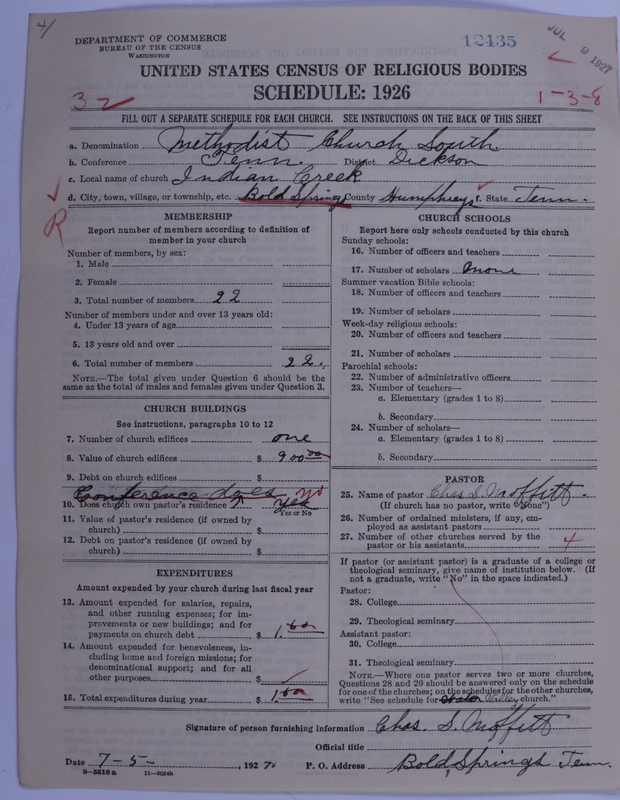 4/
DEPARTMENT OF COMMERCE
BUREAU OF THE CENSUS
WASHINGTON
12435
JUL 9 1927
UNITED STATES CENSUS OF RELIGIOUS BODIES
SCHEDULE: 1926
32
1-3-8
FILL OUT A SEPARATE SCHEDULE FOR EACH CHURCH. SEE INSTRUCTIONS ON THE BACK OF THIS SHEET
a. Denomination Methodist Church South.
b. Conference Tenn. District Dickson
c. Local name of church Indian Creek
d. City, town, village, or township, etc. Bold Spring County Humphreys f. State Tenn.
R
MEMBERSHIP
Report number of members according to definition of
member in your church
Number of members, by sex:
1. Male
2. Female
3. Total number of members 22
Number of members under and over 13 years old:
4. Under 13 years of age
5. 13 years old and over
6. Total number of members 22.
NOTE.—The total given under Question 6 should be
same as the total of males and females given under Question 3.
CHURCH BUILDINGS
See instructions, paragraphs 10 to 12
7. Number of church edifices one
8. Value of church edifices $ 900.00
9. Debt on church edifices $
Conference does no
10. Does church own pastor's residence? yes
Yes or No
11. Value of pastor's residence (if owned by
church) $
12. Debt on pastor's residence (if owned by
church) $
EXPENDITURES
Amount expended by your church during last fiscal year
13. Amount expended for salaries, repairs,
and other running expenses; for im-
provements or new buildings; and for
payments on church debt $ 1.60
14. Amount expended for benevolences, in-
cluding home and foreign missions; for
denominational support; and for all
other purposes $
15. Total expenditures during year $
CHURCH SCHOOLS
Report here only schools conducted by this church
Sunday schools:
16. Number of officers and teachers
17. Number of scholars none
Summer vacation Bible schools:
18. Number of officers and teachers
19. Number of scholars
Week-day religious schools:
20. Number of officers and teachers
21. Number of scholars
Parochial schools:
22. Number of administrative officers
23. Number of teachers—
a. Elementary (grades 1 to 8)
b. Secondary
24. Number of scholars—
a. Elementary (grades 1 to 8)
b. Secondary
PASTOR
25. Name of pastor Chas S. Moffitt.
(If church has no pastor, write "None")
26. Number of ordained ministers, if any, em-
ployed as assistant pastors
27. Number of other churches served by the
pastor or his assistants 4
If pastor (or assistant pastor) is a graduate of a college or
theological seminary, give name of institution below. (If
not a graduate, write "No" in the space indicated.)
Pastor:
28. College
29. Theological seminary
Assistant pastor:
30. College
31. Theological seminary
NOTE.—Where one pastor serves two or more churches,
Questions 28 and 29 should be answered only on the schedule
for one of the churches; on the schedules for the other churches,
write "See schedule for Valley church."
Signature of person furnishing information Chas. S. Moffitt
Official title
Date 7-5-, 1927. P. O. Address Bold Springs Tenn.
8-5518a 11-9024b